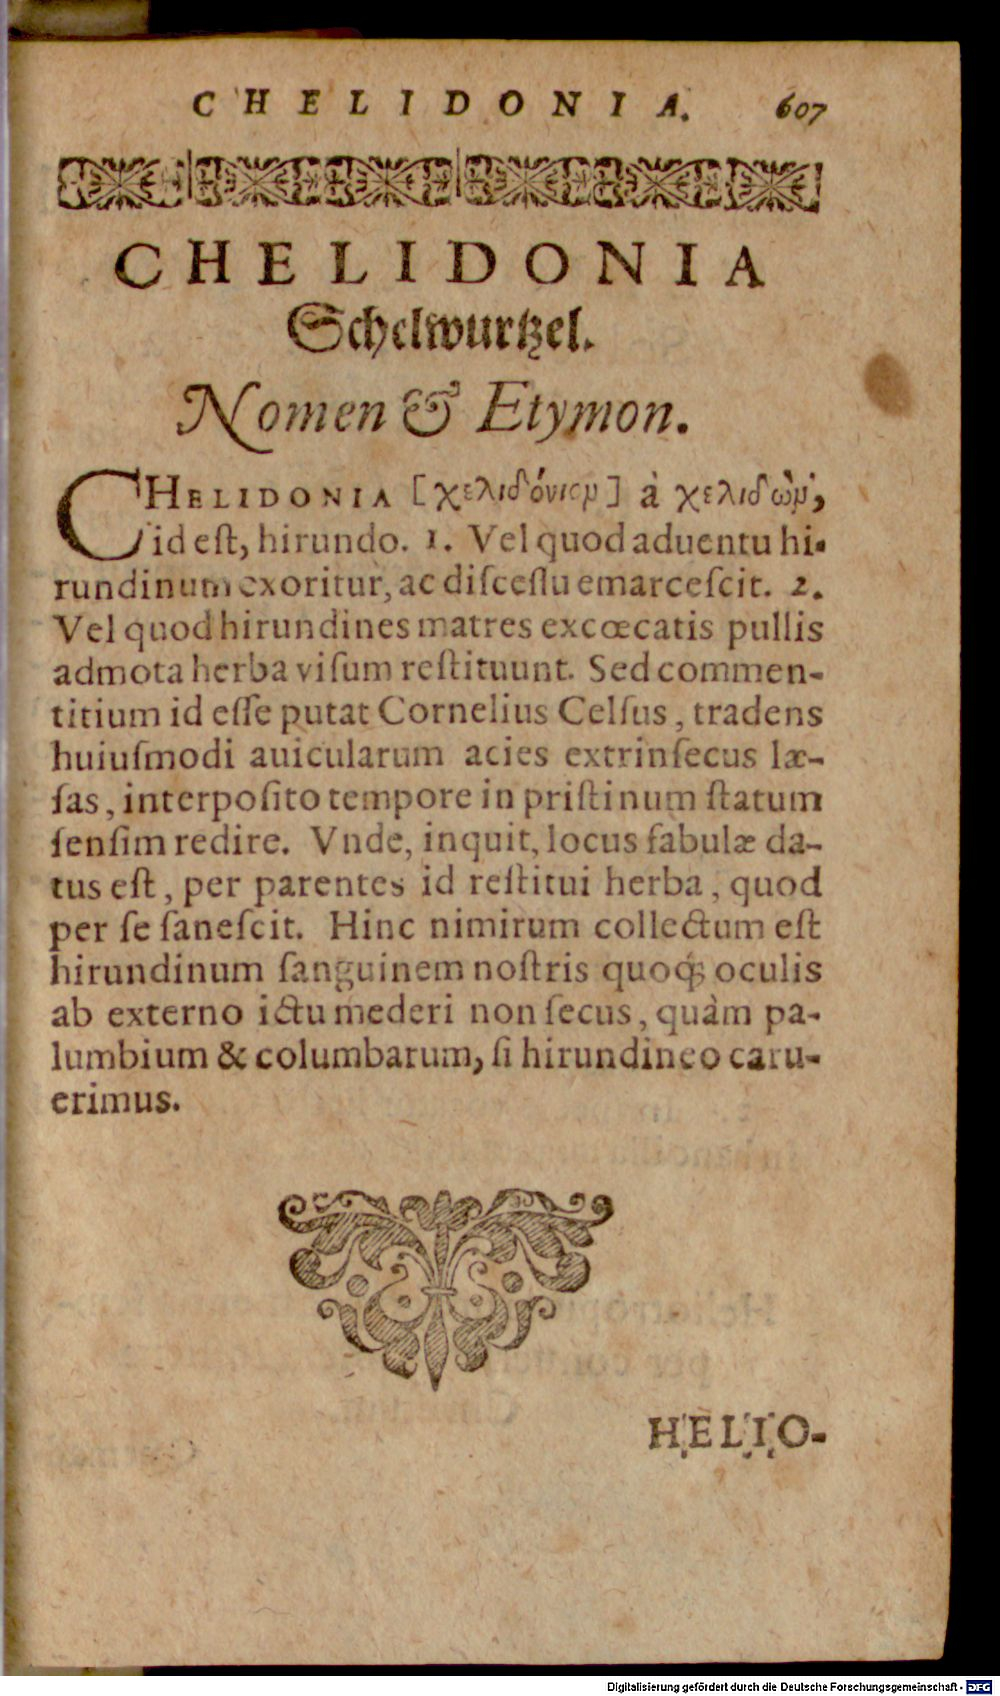 CHELIDONIA. 607
CHELIDONIA
Schelwurtzel.
Nomen & Etymon.
CHELIDONIA [χελιδόνιομ] à χελιδὼμ,
id eſt, hirundo. 1. Vel quod aduentu hi-
rundinum exoritur, ac diſceſſu emarceſcit. 2.
Vel quod hirundines matres excœcatis pullis
admota herba viſum reſtituunt. Sed commen-
titium id eſſe putat Cornelius Celſus, tradens
huiuſmodi auicularum acies extrinſecus læ-
ſas, interpoſito tempore in priſtinum ſtatum
ſenſim redire. Vnde, inquit, locus fabulæ da-
tus eſt, per parentes id reſtitui herba, quod
per ſe ſaneſcit. Hinc nimirum collectum eſt
hirundinum ſanguinem noſtris quoq; oculis
ab externo ictu mederi non ſecus, quàm pa-
lumbium & columbarum, ſi hirundineo caru-
erimus.
HELIO-
Digitalisierung gefördert durch die Deutsche Forschungsgemeinschaft - DFG